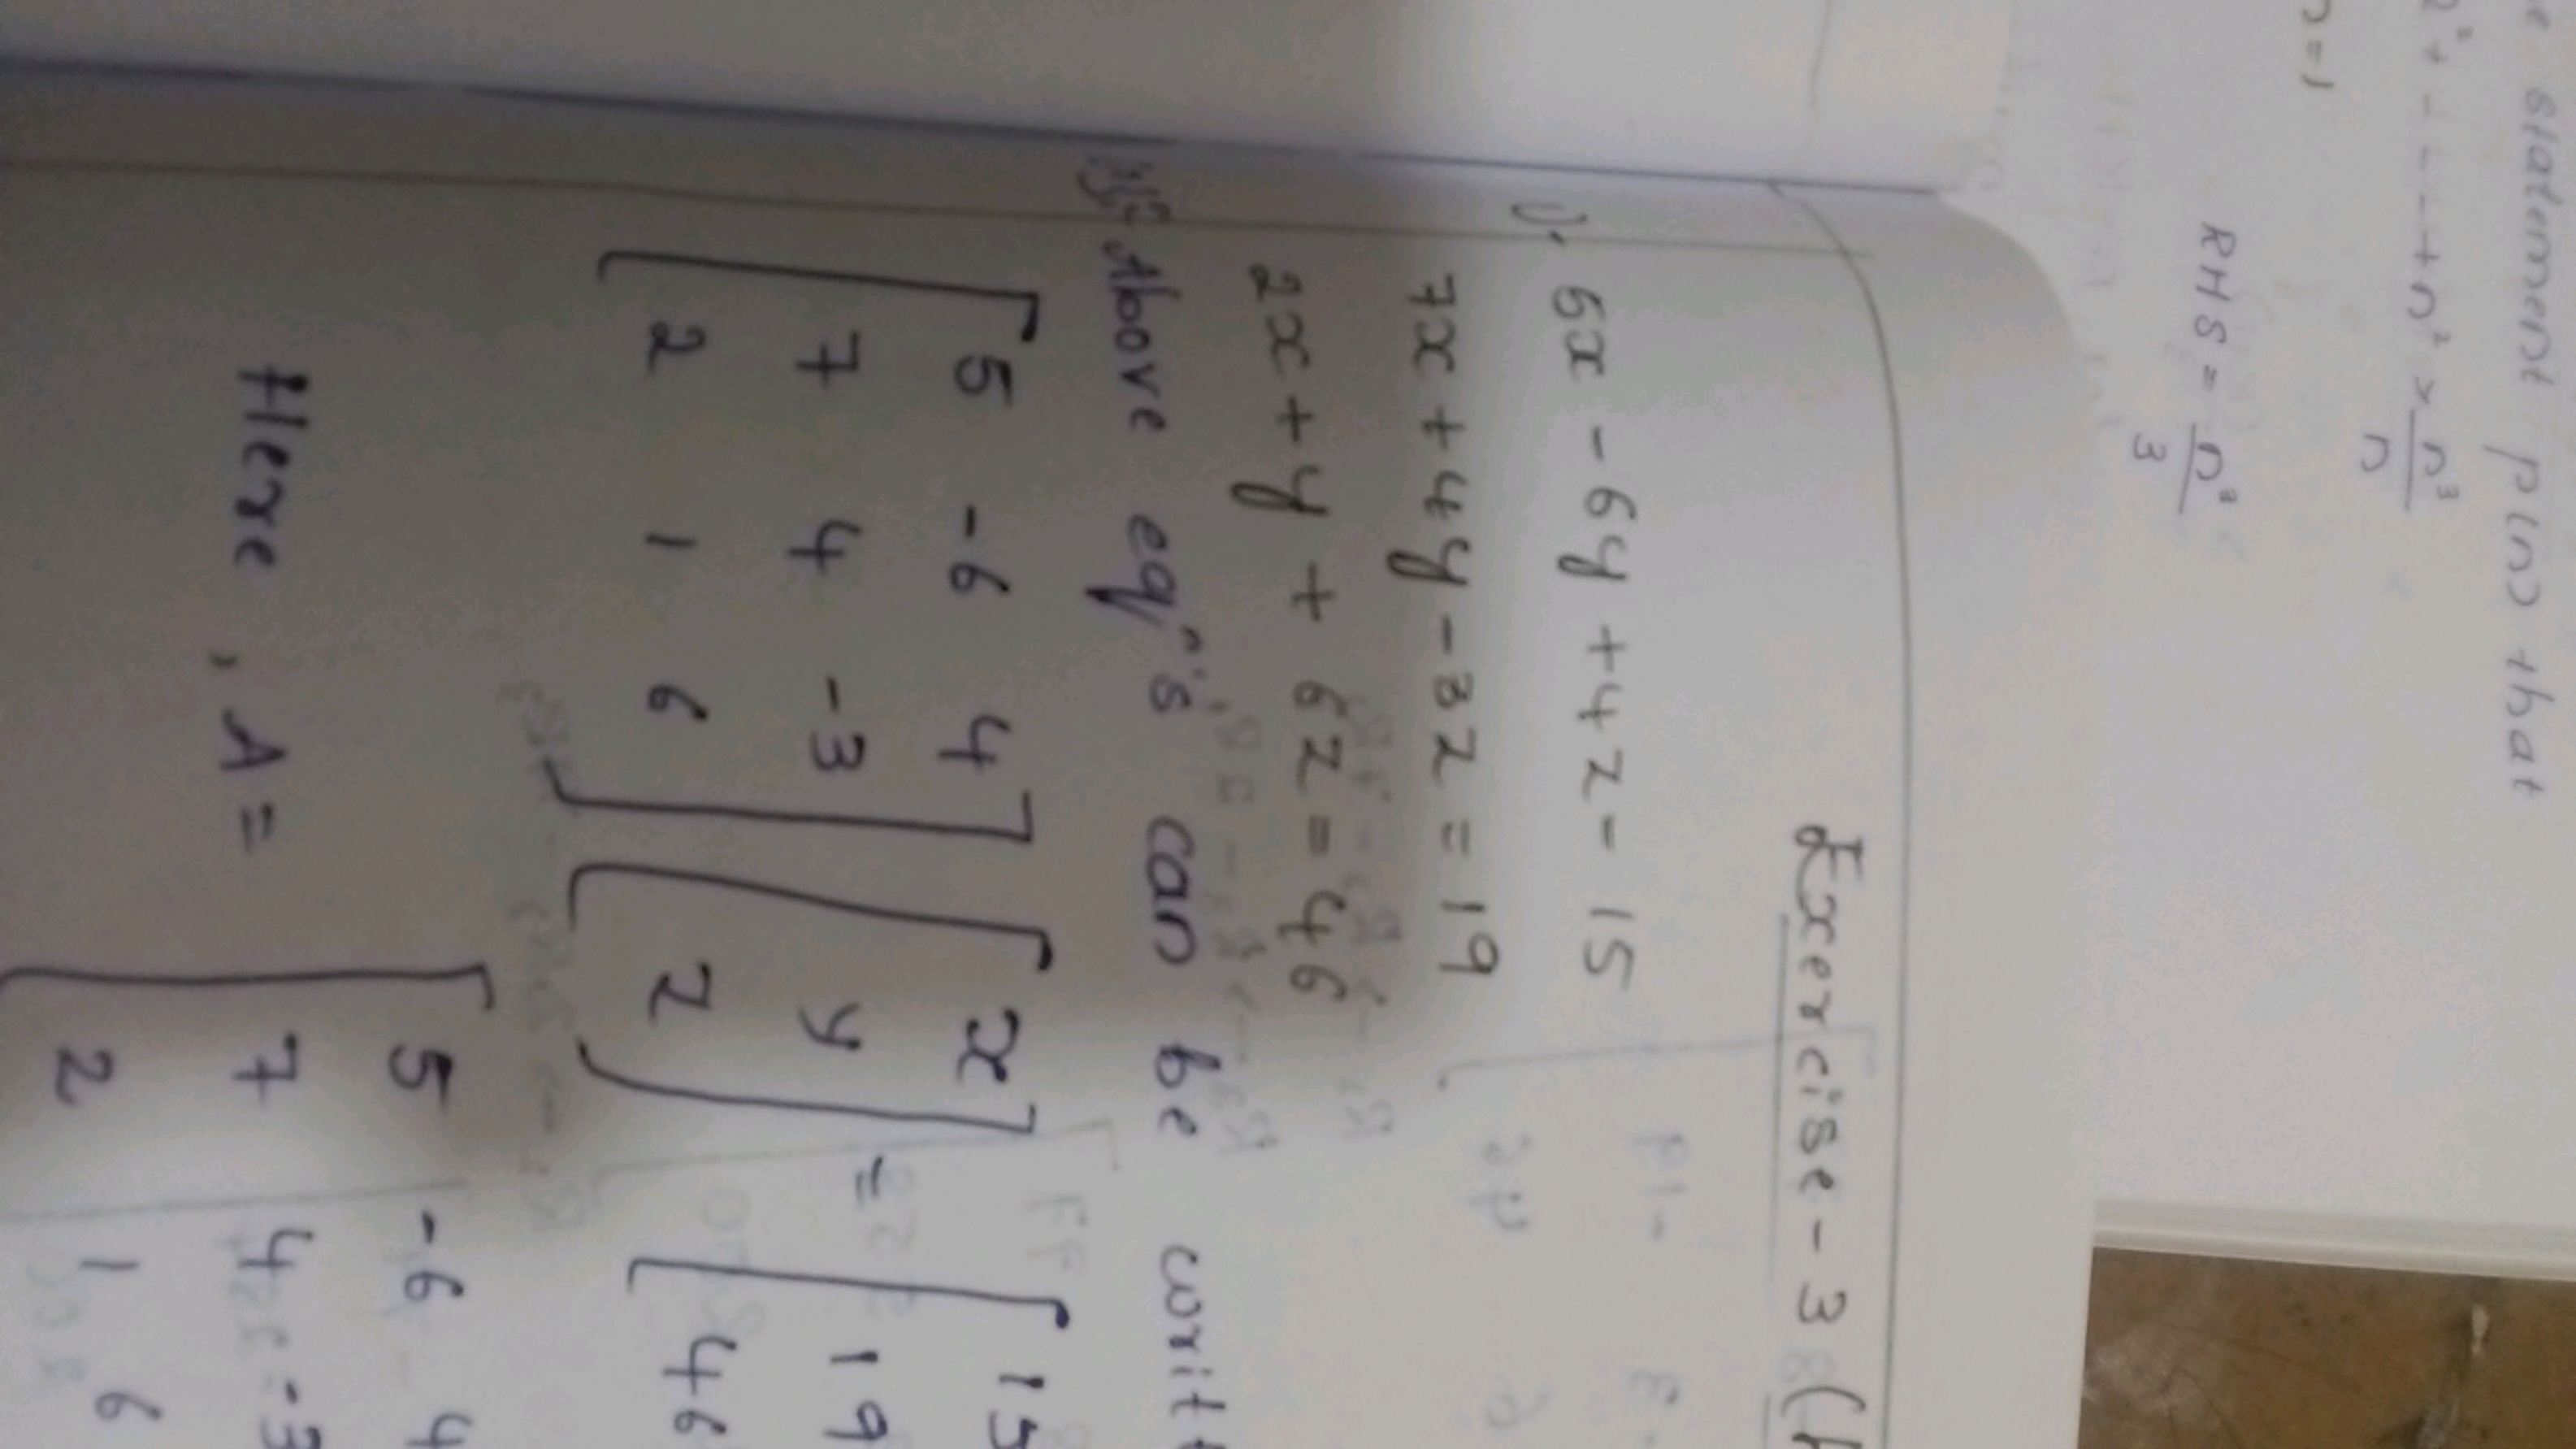 statement p(n) that
+ - - - - + n² > n³/n
n = 1
RHS = n³/3
Exercise - 3 (
1). 5x - 6y + 4z - 15
7x + 4y - 3z = 19
2x + y + 6z = 46
Above eqⁿ's can be writt
[5 -6 4] [x] = [15
7 4 -3 y 19
2 1 6 z 46
Here, A = [5 -6 4
7 4 -3
2 1 6